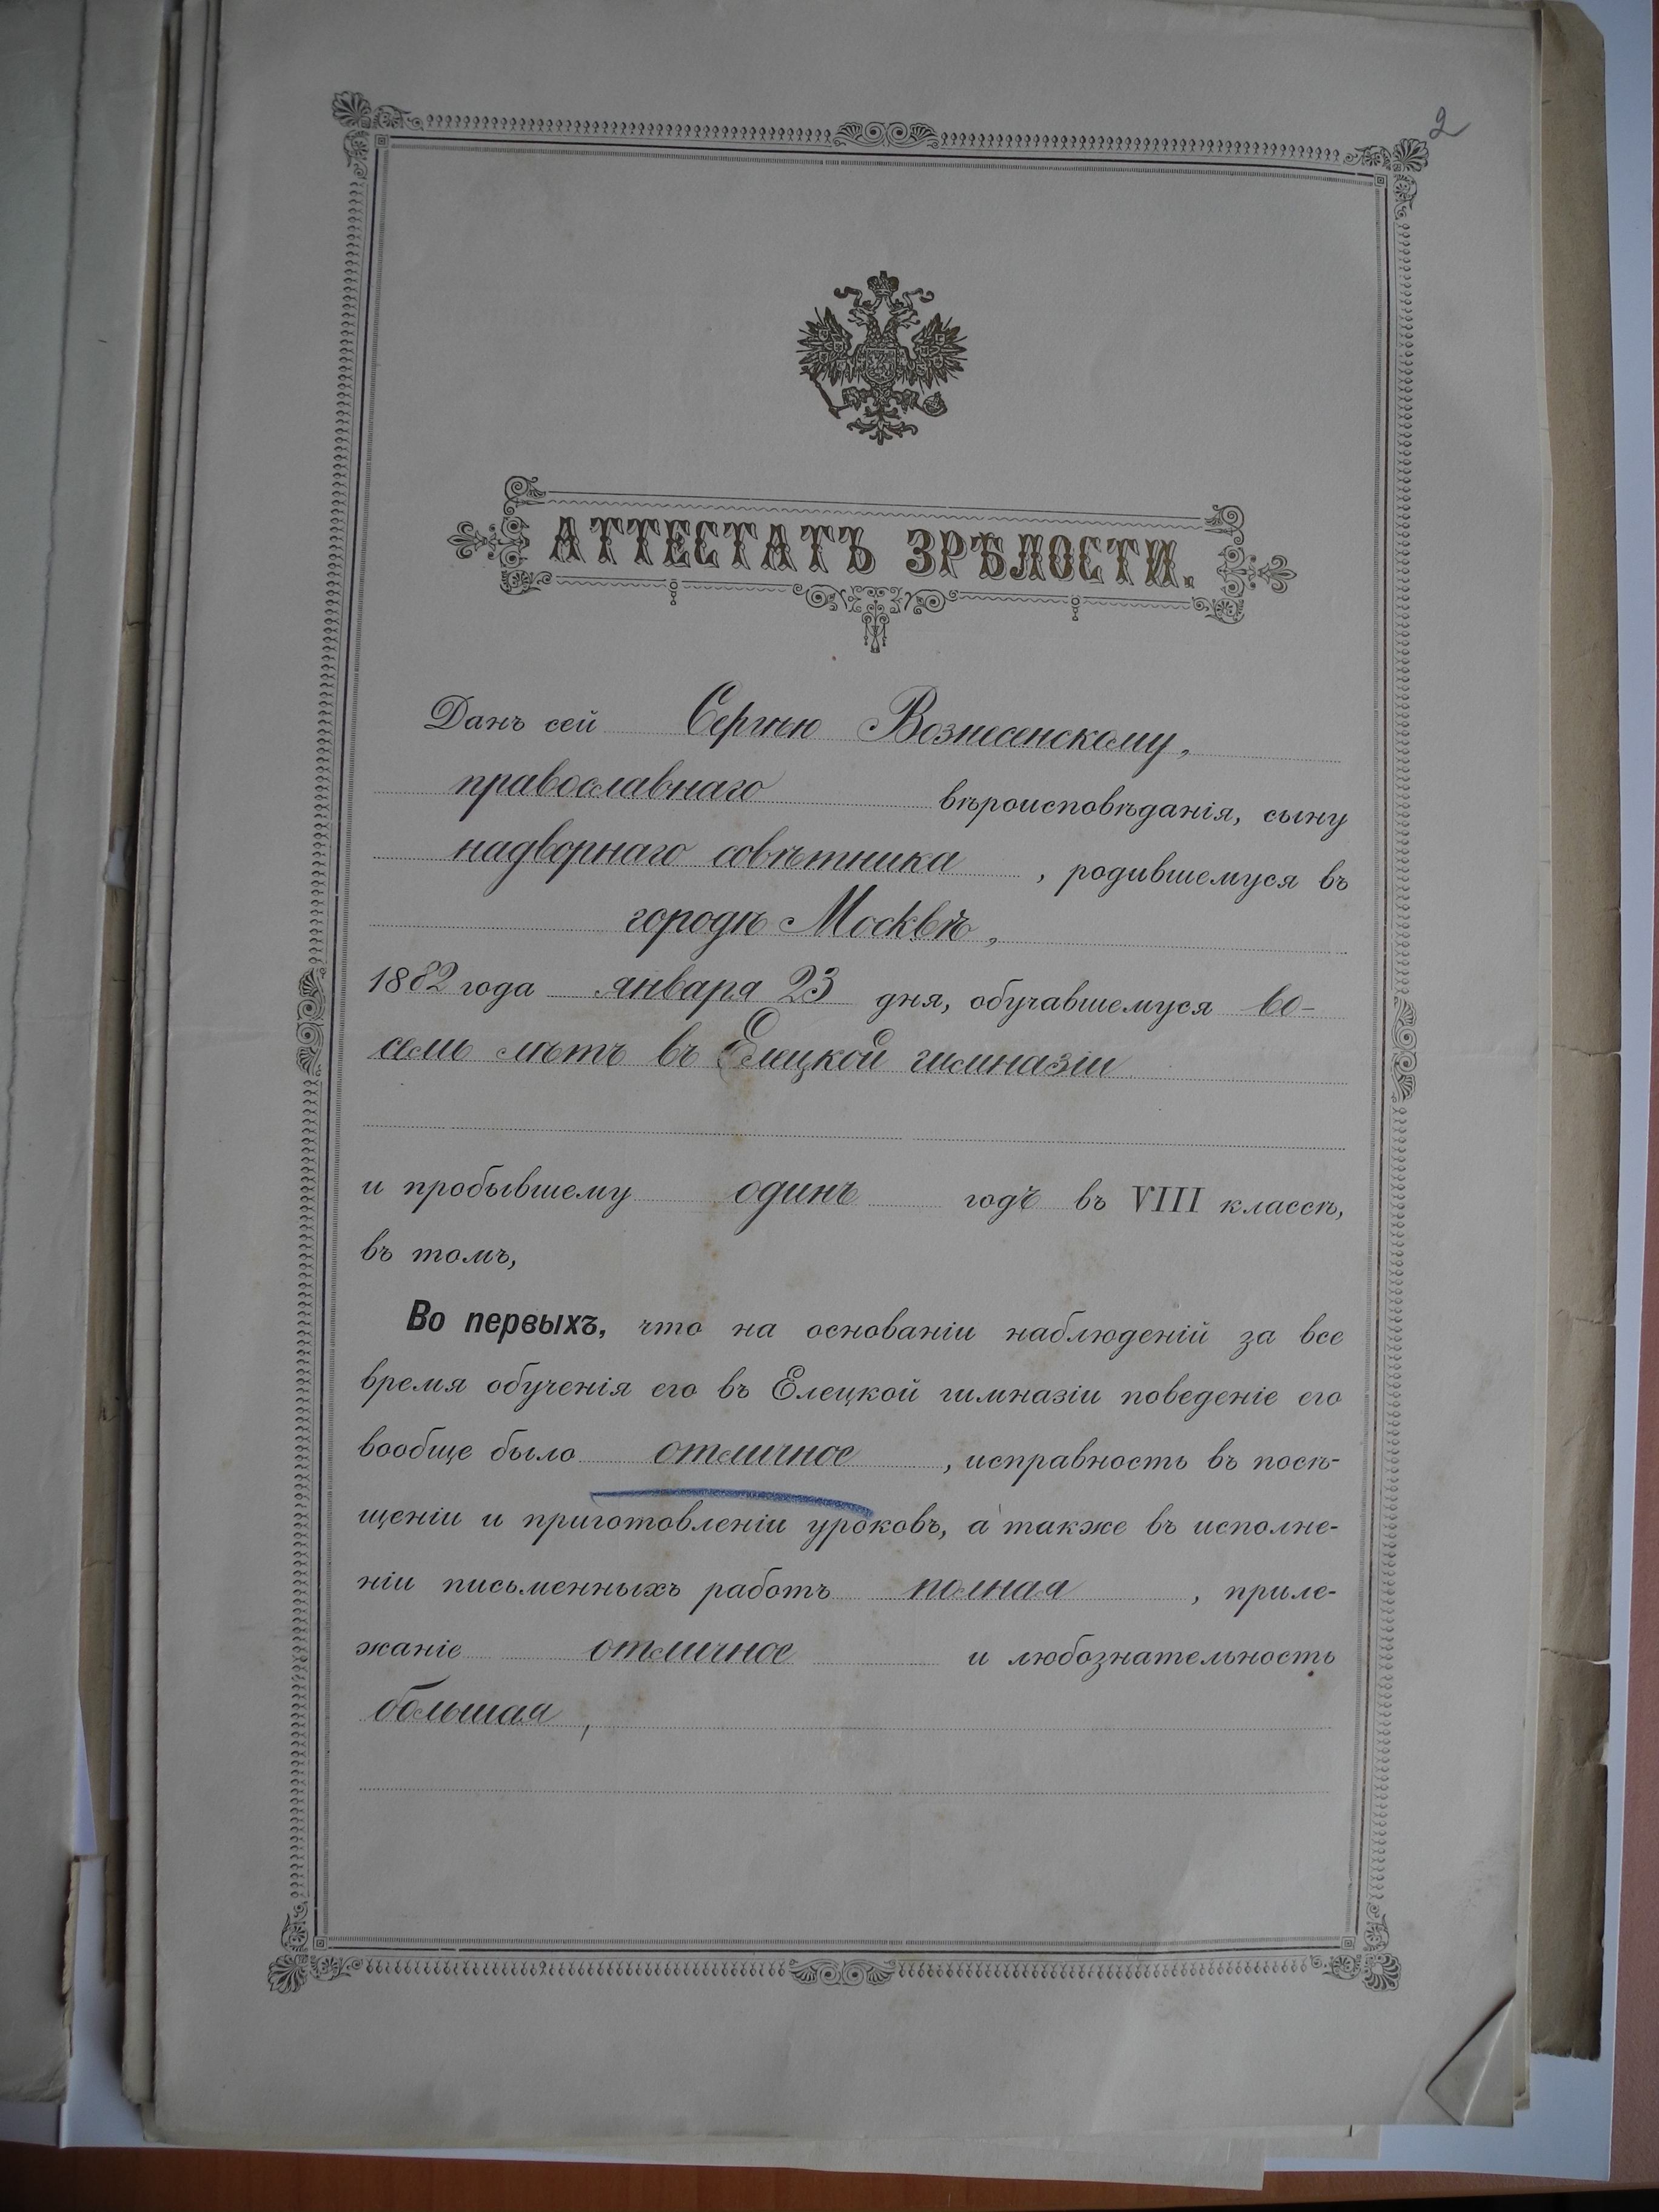 2
АТТЕСТАТЪ ЗРѢЛОСТИ.
Данъ сей Сергѣю Вознесенскому,
православнаго вѣроисповѣданія, сыну
надворнаго совѣтника , родившемуся въ
городѣ Москвѣ,
1882 года января 23 дня, обучавшемуся во-
семь лѣтъ въ Елецкой гимназіи
и пробывшему одинъ годъ въ VIII классѣ,
въ томъ,
Во первыхъ, что на основаніи наблюденій за все
время обученія его въ Елецкой гимназіи поведеніе его
вообще было отличное , исправность въ посѣ-
щеніи и приготовленіи уроковъ, а также въ исполне-
ніи письменныхъ работъ полная , приле-
жаніе отличное и любознательность
большая ,